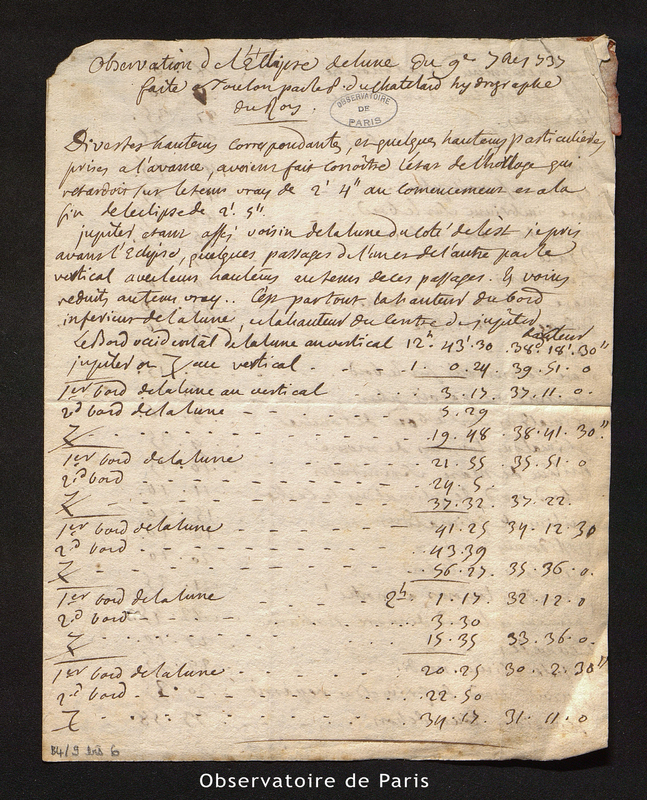 Observation de l'Eclipse de lune du 9e 7bre 1737
faite a Toulon par le P. du Chatelard hydrographe
du Roy.
OBSERVATOIRE
DE
PARIS
Diverses hauteurs correspondantes, et quelques hauteurs particulieres
prises a l'avance, avoient fait conoître l'etat de l'horloge qui
retardoit sur le tems vray de 2' 4" au comencement et a la
fin de leclipse de 2'. 5".
jupiter etant assés voisin de la lune du coté de l'est je pris
avant l'Eclipse, quelques passages de l'un et de l'autre par le
vertical avec leurs hauteurs au tems de ces passages. Les voicy
reduits au tems vray.. C'est par tout, la hauteur du bord
inferieur de la lune, et la hauteur du centre de jupiter
hauteur
le Bord occidental de la lune au vertical 12h. 43'. 30 38d. 18'. 30"
jupiter ou ♃ au vertical - - 1. 0. 24 39. 51. 0
1er bord de la lune au vertical - - - 3. 17. 37. 11. 0.
2d bord de la lune - - - - 5. 29
♃ - - - - 19. 48 38. 41. 30"
1er bord de la lune - - - - 21. 55 35. 51. 0
2d bord - - - - 24. 5.
♃ - - - - 37. 32. 37. 22.
1er bord de la lune - - - - 41. 25 34. 12. 30
2d bord - - - - 43. 39
♃ - - - - 56. 27. 35. 36. 0.
1er bord de la lune - - - - 2h 1. 17 32. 12. 0
2d bord - - - - 3. 30
♃ - - - - 15. 35 33. 36. 0.
1er bord de la lune - - - - 20. 25 30. 2. 30"
2d bord - - - - 22. 50
♃ - - - - 34. 17. 31. 11. 0
B4/9 bis 6
Observatoire de Paris